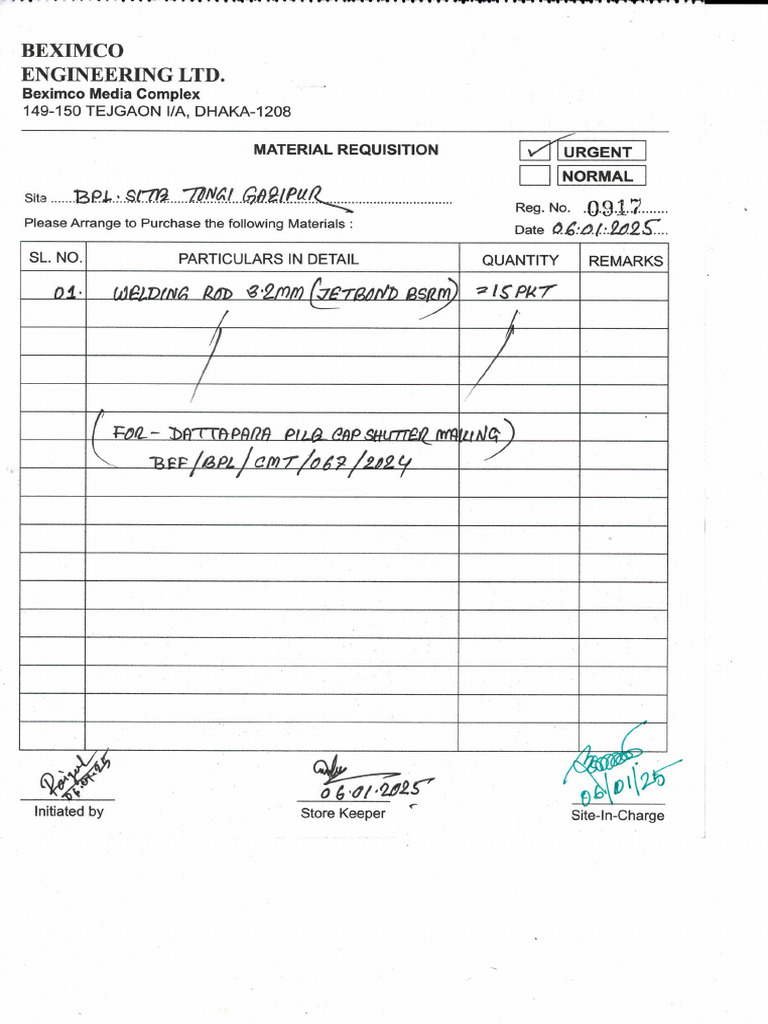 BEXIMCO
ENGINEERING LTD.
Beximco Media Complex
149-150 TEJGAON I/A, DHAKA-1208
MATERIAL REQUISITION
✓ URGENT
NORMAL
Site BPL. SITE TONGI GAZIPUR
Reg. No. 0917
Please Arrange to Purchase the following Materials :
Date 06.01.2025
SL. NO. PARTICULARS IN DETAIL QUANTITY REMARKS
01. WELDING ROD 3.2MM (JETBOND BSRM) =15 PKT
(FOR - DATTAPARA PILE CAP SHUTTER MAKING)
BEF/BPL/CMT/067/2024
06.01.25
06.01.2025
06/01/25
Initiated by
Store Keeper
Site-In-Charge